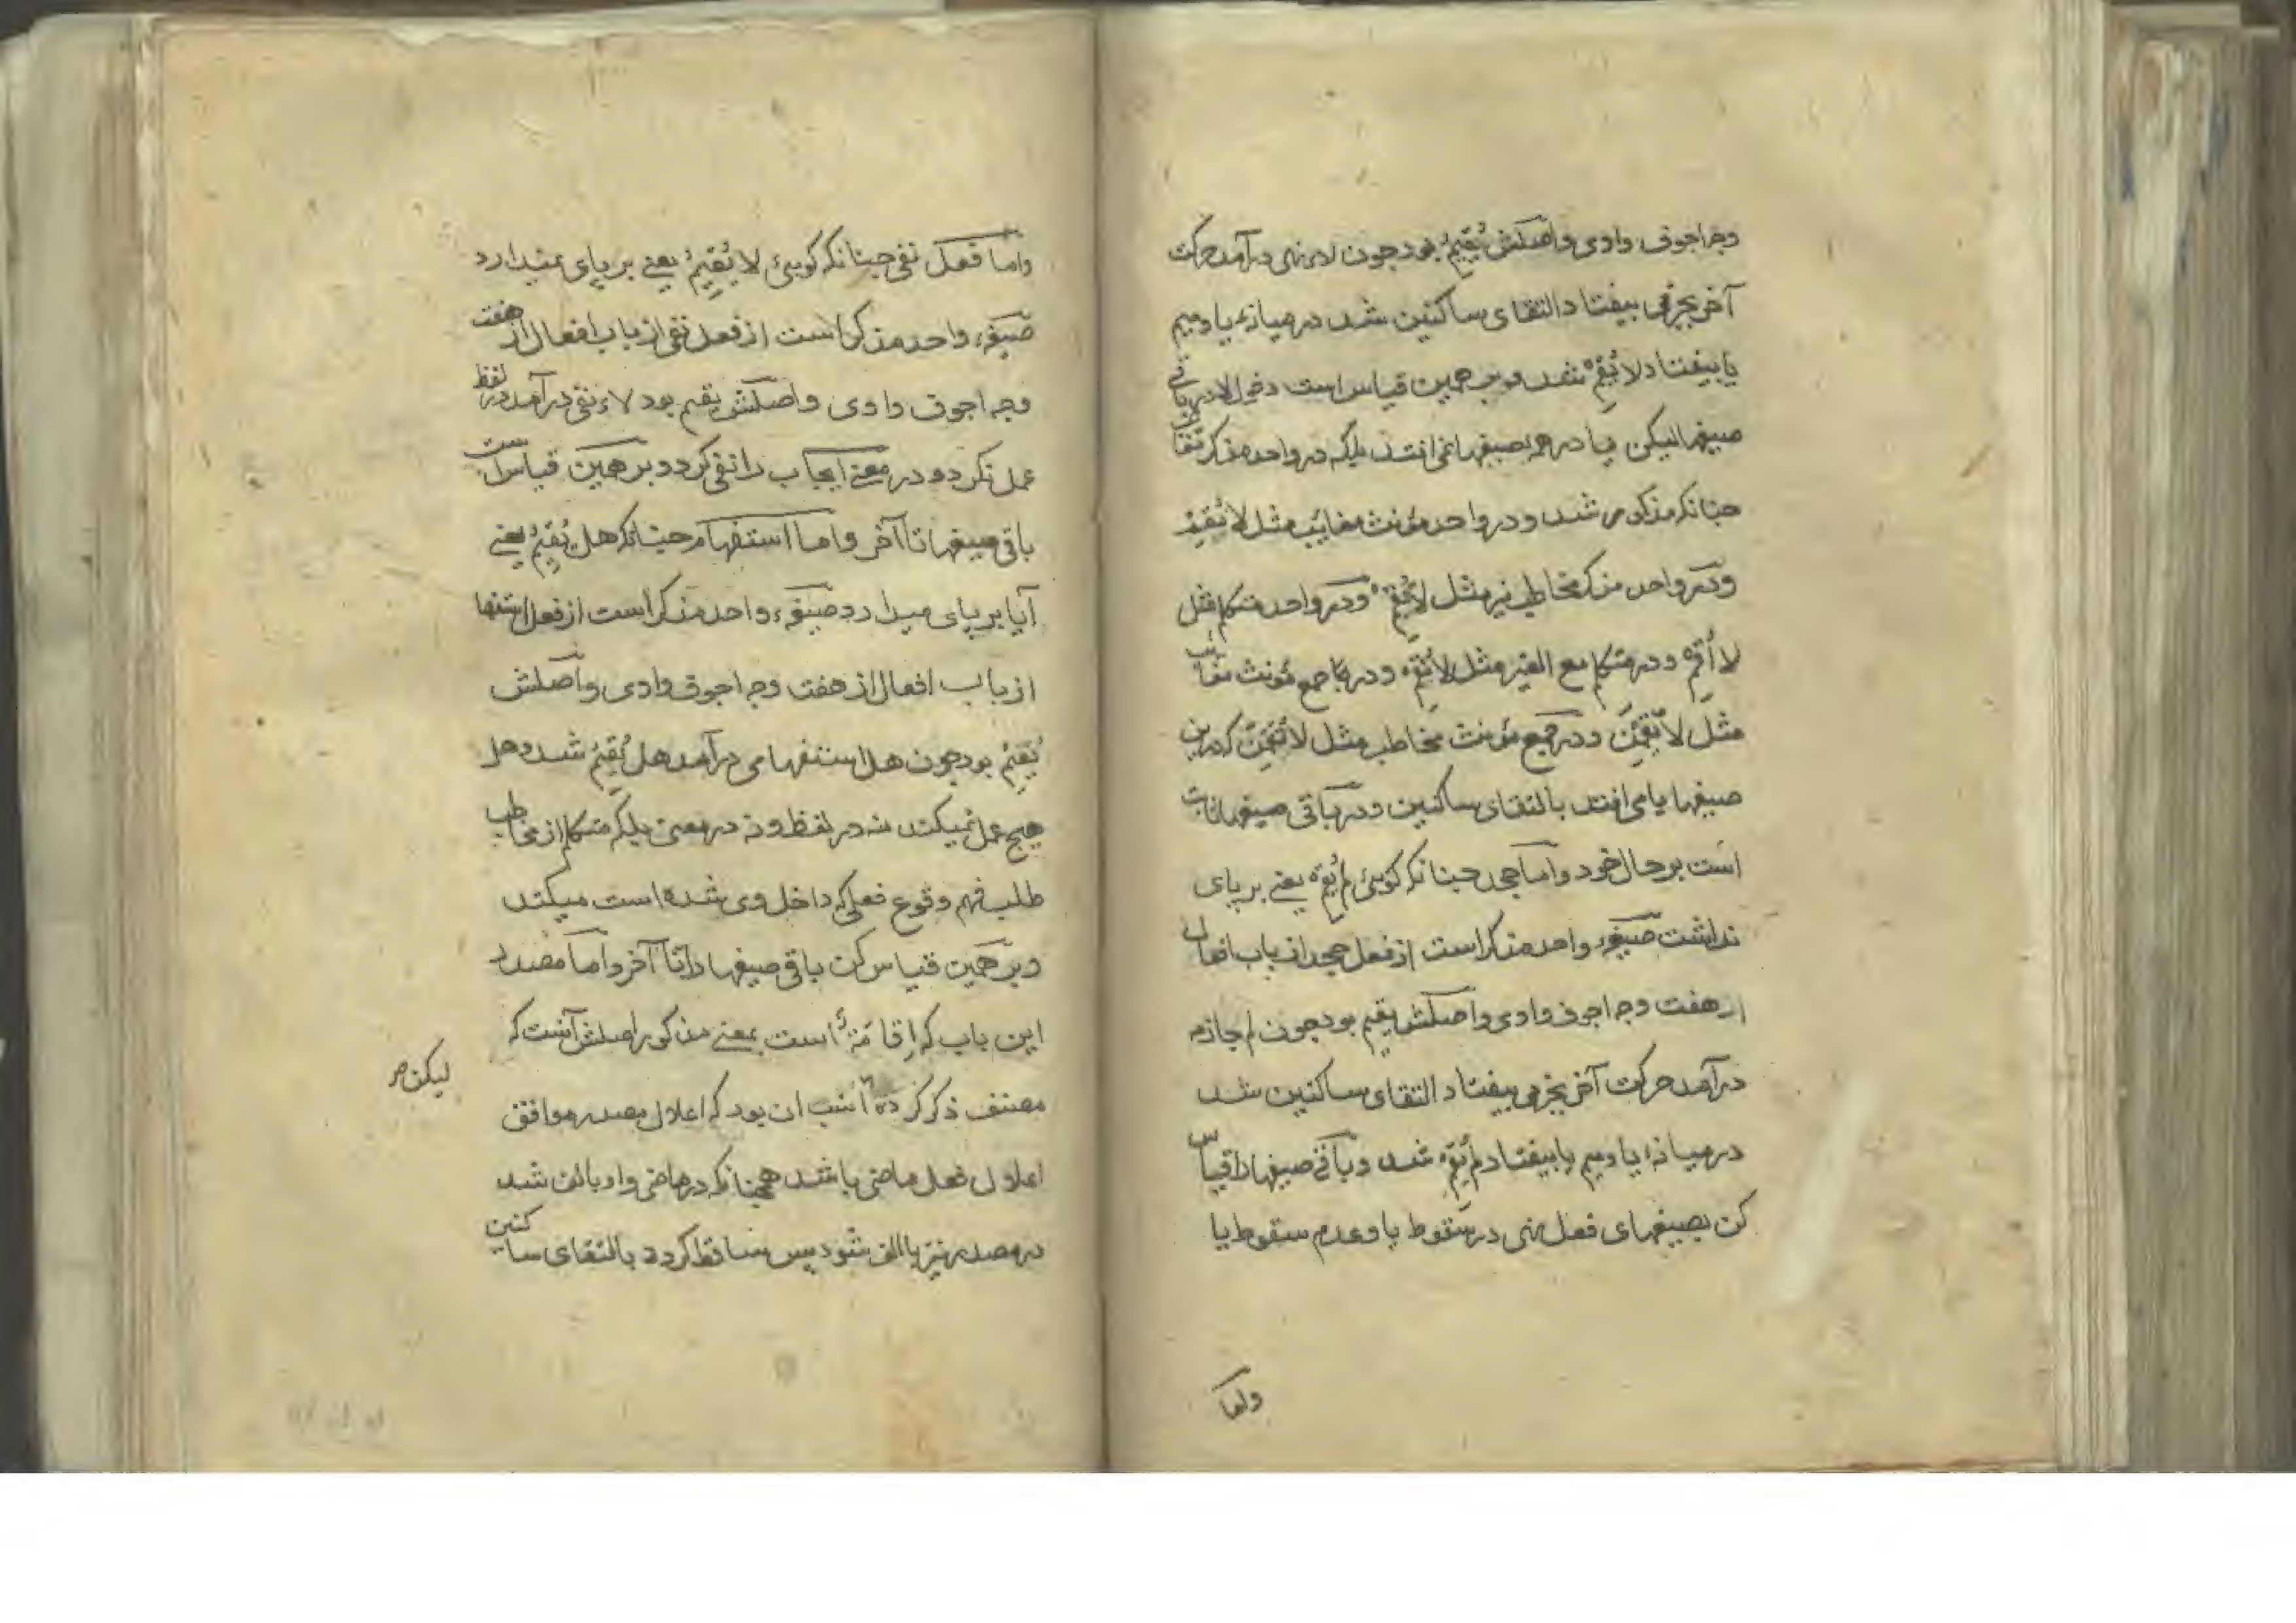 وجه اجوف وادی و اصلش یُقِیمُ بود چون لای نهی درآمد حرکت
آخر بجزمی بیفتاد التقای ساکنین شد در میانهٔ یا و میم
یا بیفتاد لا یُقِمْ شد و بر همین قیاس است دخول لا در باقی
صیغها لیکن یا در همه صیغها نمی افتد بلکه در واحد مذکر مغایب
چنانکه مذکور شد و در واحد مؤنث مغایب مثل لا تُقِمْ
و در واحد مذکر مخاطب نیز مثل لا تُقِمْ و در واحد متکلم مثل
لا أُقِمْ و در متکلم مع الغیر مثل لا نُقِمْ و در جمع مؤنث مغایب
مثل لا یُقِمْنَ و در جمع مؤنث مخاطب مثل لا تُقِمْنَ که درین
صیغها یا می افتد بالتقای ساکنین و در باقی صیغها ثابت
است بر حال خود و اما جحد چنانکه کویئ لم یُقِمْ یعنے بر پای
نداشت صیغهٔ واحد مذکر است از فعل جحد از باب افعال
از هفت وجه اجوف وادی و اصلش یقیم بود چون لم جازمه
درآمد حرکت آخر بجزمی بیفتاد التقای ساکنین شد
در میانهٔ یا و میم یا بیفتاد لم یُقِمْ شد و باقی صیغها را قیاس
کن بصیغهای فعل نهی در سقوط یا و عدم سقوط یا
واما
واما فعل نفی چنانکه کویئ لا یُقِیمُ یعنے بر پای نمیدارد
صیغهٔ واحد مذکر است از فعل نفی از باب افعال از هفت
وجه اجوف وادی و اصلش یقیم بود لاء نفی درآمد در لفظ
عمل نکرد و در معنے ایجاب را نفی کرد و بر همین قیاس است
باقی صیغها تا آخر و اما استفهام چنانکه هل یُقِیمُ یعنے
آیا بر پای میدارد صیغهٔ واحد مذکر است از فعل استفها
از باب افعال از هفت وجه اجوف وادی و اصلش
یُقِیمُ بود چون هل استفهامی درآمد هل یُقِیمُ شد و هل
هیچ عمل نمیکند نه در لفظ و نه در معنی بلکه متکلم از مخاطب
طلب فهم وقوع فعلی که داخل وی شده است میکند
و بر همین قیاس کن باقی صیغها را تا آخر و اما مصدر
این باب که اِقامَةً است بمعنے مذکور اصلش آنست که
مصنف ذکر کرده انسب ان بود که اعلال مصدر موافق
لیکن
اعلال فعل ماضی باشد همچنانکه در ماضی واو بالف شد
در مصدر نیز بالف شود پس ساقط کردد بالتقای ساکنین